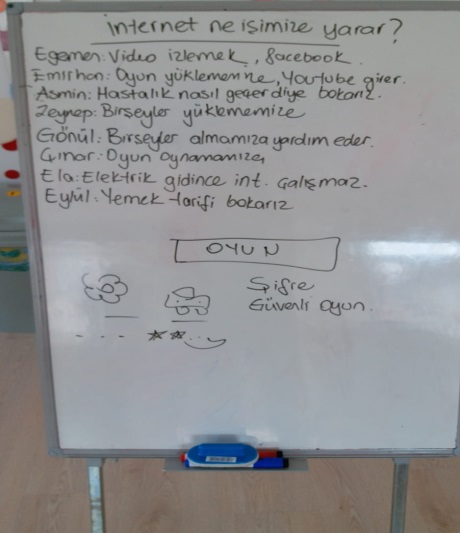 internet ne işimize yarar?
Egemen: Video izlemek, facebook.
Emirhan: Oyun yüklememine, Youtube girer.
Asmin: Hastalık nasıl geçer diye bakarız.
Zeynep: Birşeyler yüklememize
Gönül: Birşeyler almamıza yardım eder.
Çınar: Oyun oynamamıza,
Ela: Elektrik gidince int. çalışmaz.
Eylül: Yemek tarifi bakarız
OYUN
Şifre
Güvenli oyun.